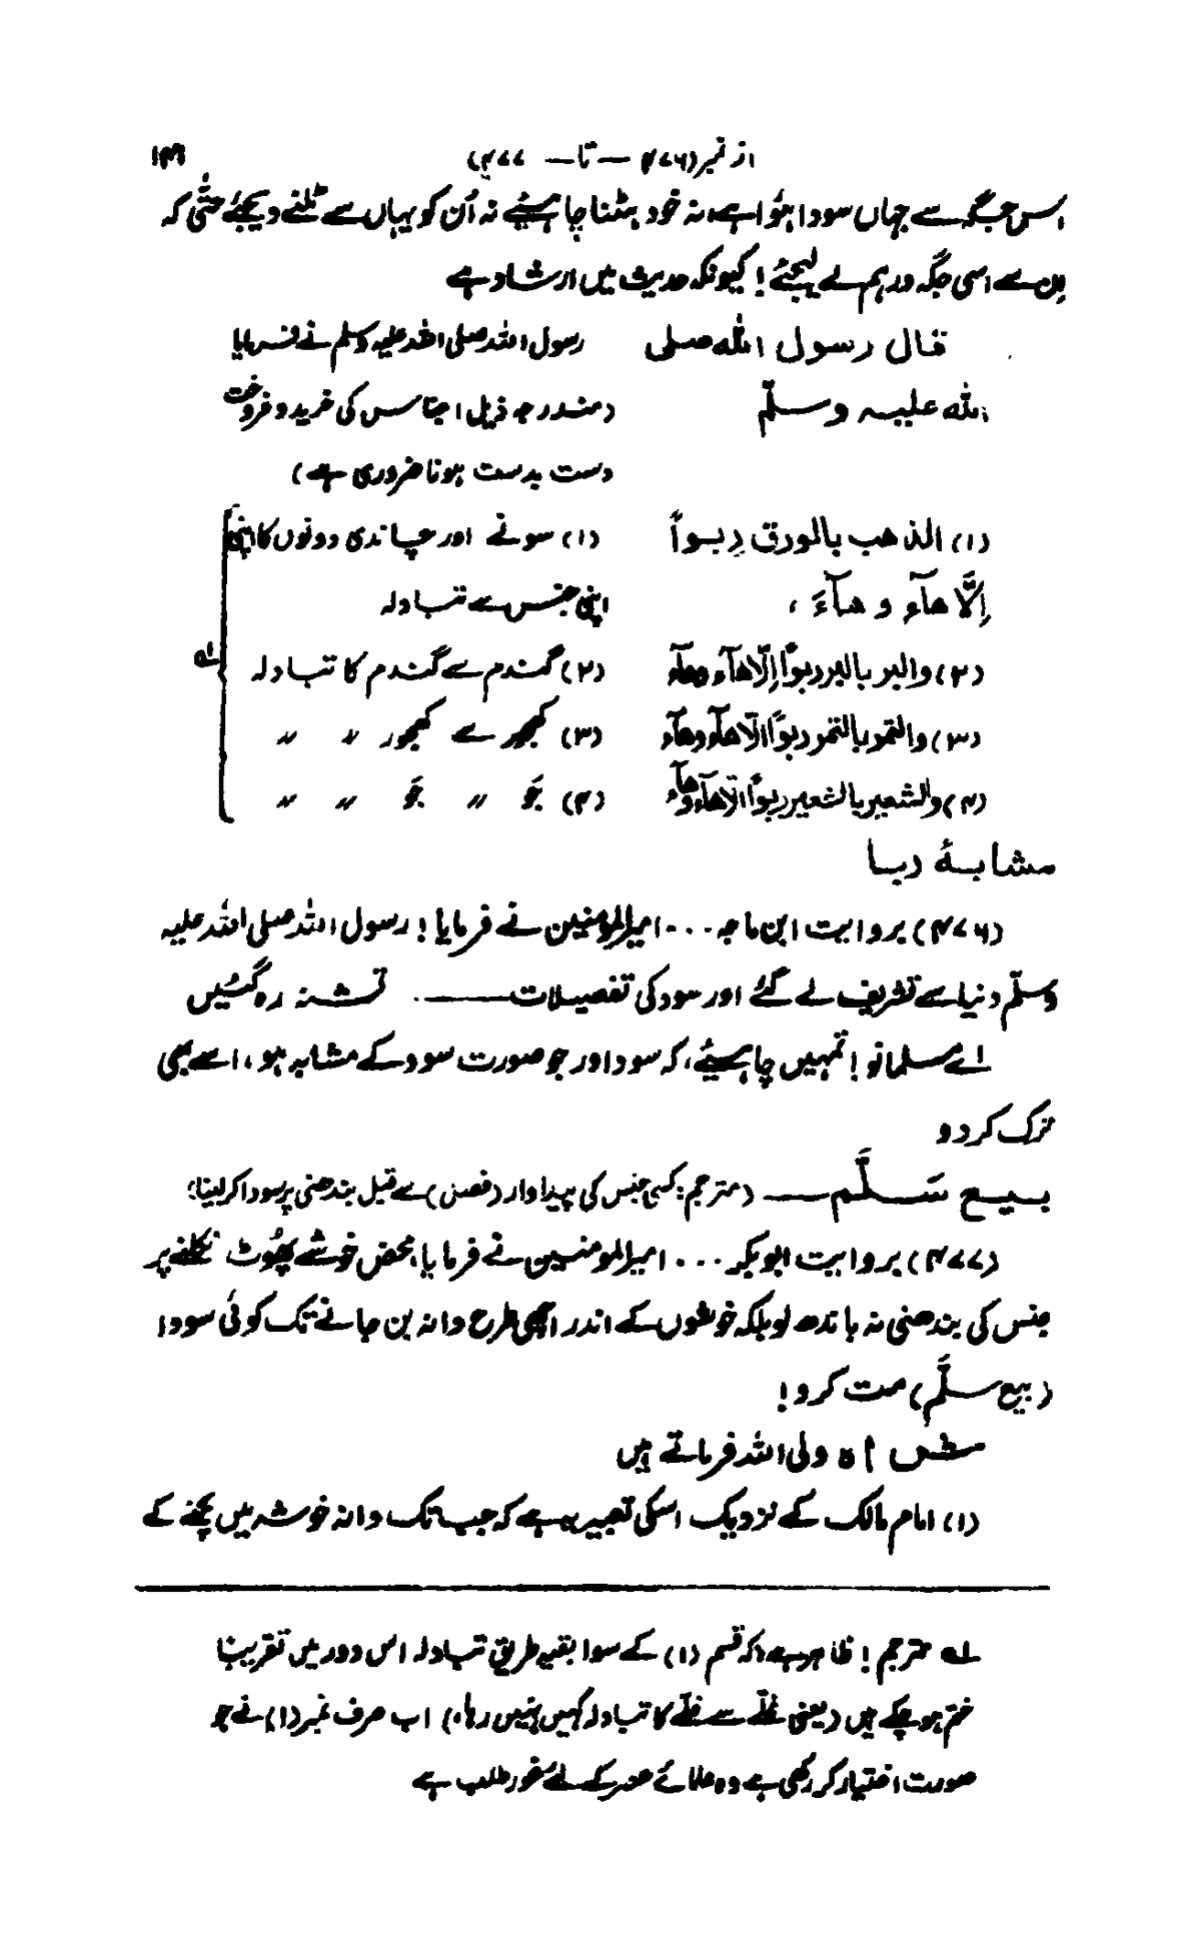 از نمبر (۴۷۶ — تا — ۴۷۷) ۱۳۶
اس جگہ سے جہاں سودا ہؤا ہے، نہ خود ہٹنا چاہیئے نہ اُن کو یہاں سے ٹلنے دیجئے حتّٰی کہ
اِن سے اسی جگہ درہم لے لیجئے! کیونکہ حدیث میں ارشاد ہے
قال رسول اللہ صلی رسول اللہ صلی اللہ علیہ وسلم نے فرمایا
اللہ علیہ وسلّم (مندرجہ ذیل اجناس کی خرید و فروخت
دست بدست ہونا ضروری ہے)
(۱) الذھب بالورق رِبواً (۱) سونے اور چاندی دونوں کا اپنی
اِلَّا ھآءِ و ھآءَ، اپنی جنس سے تبادلہ
(۲) والبر بالبر ربوًا اِلّا ھآء وھآء (۲) گندم سے گندم کا تبادلہ لہ
(۳) والتمر بالتمر ربوًا الّا ھآء وھآء (۳) کھجور سے کھجور 〃 〃
(۴) والشعیر بالشعیر ربوًا الّا ھآء وھآء (۴) جَو 〃 جَو 〃 〃
مشابۂ ربا
(۴۷۶) بروایت ابن ماجہ ... امیرالمومنین نے فرمایا! رسول اللہ صلی اللہ علیہ
وسلّم دنیا سے تشریف لے گئے اور سود کی تفصیلات —— . تشنہ رہ گئیں
اے مسلمانو! تمہیں چاہیئے، کہ سود اور جو صورت سود کے مشابہ ہو، اسے بھی
ترک کر دو
بیع سَلَّم — (مترجم: کسی جنس کی پیداوار (فصل) سے قبل بندھنی پر سودا کر لینا)
(۴۷۷) بروایت ابوبکر ... امیرالمومنین نے فرمایا، محض خوشے پھُوٹ نکلنے پر
جنس کی بندھنی نہ باندھ لو بلکہ خوشوں کے اندر اچھی طرح دانہ بن جانے تک کوئی سودا
(بیع سلَّم) مت کرو!
شاہ ولی اللہ فرماتے ہیں
(۱) امام مالک کے نزدیک اسکی تعبیر یہ ہے کہ جب تک دانہ خوشہ میں پکنے کے
لہ مترجم! ظاہر ہے کہ قسم (۱) کے سوا بقیہ طریق تبادلہ اس دور میں تقریبًا
ختم ہو چکے ہیں (یعنی غلّے سے غلّے کا تبادلہ کہیں نہیں رہا،) اب صرف نمبر (۱) نے جو
صورت اختیار کر رکھی ہے وہ علمائے عصر کے لئے غور طلب ہے